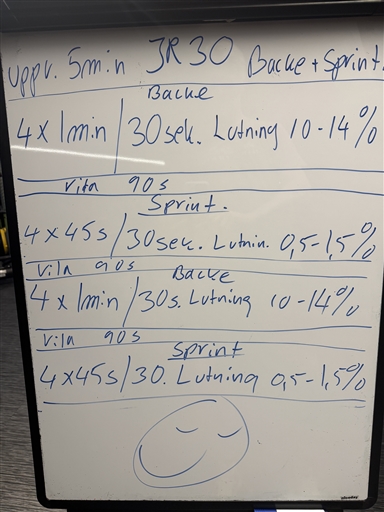 uppv. 5min JR30 Backe + Sprint.
Backe
4 x 1min / 30sek. Lutning 10-14%
Vila 90s
Sprint.
4 x 45s / 30sec. Lutnin. 0,5-1,5%
Vila 90s Backe
4 x 1min / 30s. Lutning 10-14%
Vila 90s
Sprint
4 x 45s / 30. Lutning 0,5-1,5%